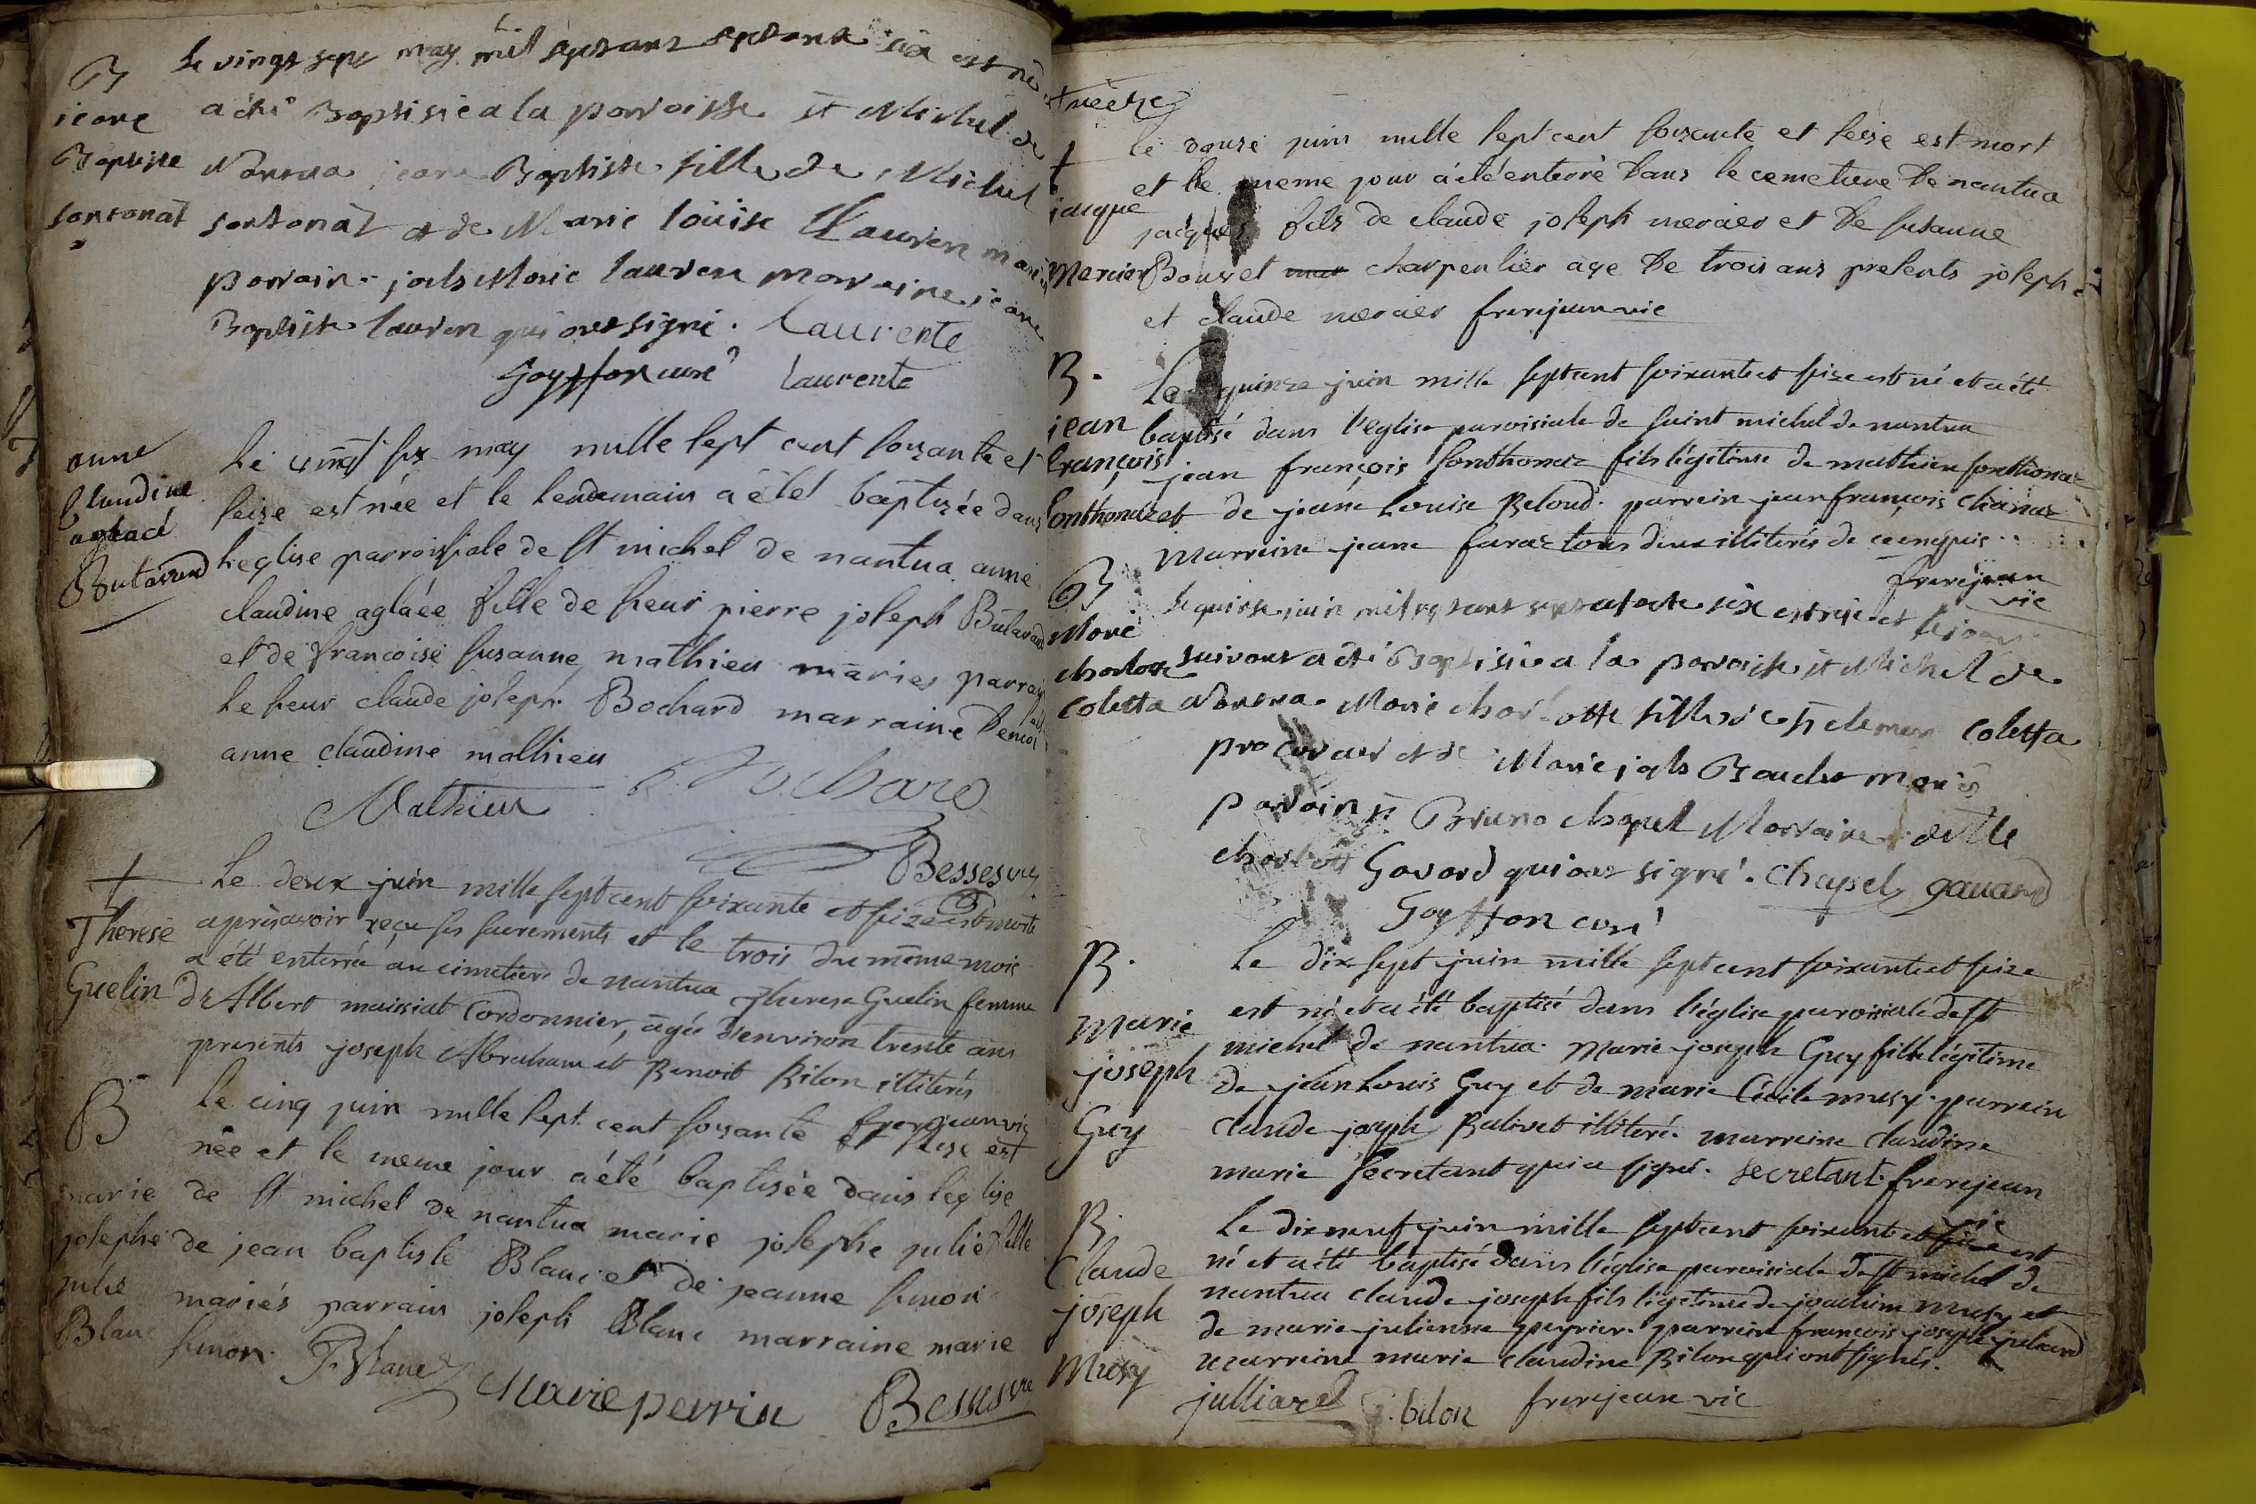 B
jeane
Baptiste
sontonat
Le vingt sept may mil sept sans septante six est née
a été Baptisiè a la parroisse st Michel de
Nantua jeane Baptiste fille de Michel
sontonat et de Marie loüise Lauren mariés
parrain jals Marie lauren marraine jeane
Baptiste lauren qui ont signé. Laurente
Goyffon curé laurente
anne
Claudine
aglaé
Butavand
Le vingt six may mille sept cent soixante et
seize est née et le lendemain a été baptisée dans
l'eglise parroissiale de st michel de nantua anne
claudine aglaée fille de sieur pierre joseph Butavand
et de françoise susanne mathieu mariés parrain
le sieur claude joseph Bochard marraine
anne claudine mathieu
Mathieu Bochard
Besses vic
†
Therese
Guelin
Le deux juin mille sept cent soixante et seize est morte
après avoir reçu ses sacrements et le trois du même mois
a été enterrée au cimetiere de nantua Therese Guelin femme
de Albert maissiat Cordonnier, agée d'environ trente ans
presents joseph Abraham et Benoit Bilon illiterés
frerejean vic
B
marie
josephe
julie
Blanc
Le cinq juin mille sept cent soixante et seize est
née et le meme jour a été baptisée dans leglise
de st michel de nantua marie josephe julie fille
de jean baptiste Blanc et de jeanne simon
mariés parrain joseph Blanc marraine marie
simon. J. Blanc
Marie perrin Besses vic
† neetze
†
jacque
Mercier
le douze juin mille sept cent soixante et seise est mort
et le meme jour a été enterré dans le cemetiere de nantua
jacques fils de claude joseph mercier et de susanne
Bouvet charpentier age de trois ans presents joseph
et claude mercier frerejean vic
B.
jean
françois
sonthonaz
Le quinze juin mille sept cent soixante et seize est né et a été
baptisé dans l'eglise paroisiale de saint michel de nantua
jean françois sonthonaz fils légitime de mathieu sonthonaz
et de jeane Louise Reloud. parrein jean françois Chanaz
Marreine jeane faraz tous deux illiterés de ce enquis..
frerejean
vic
B
Marie
charlotte
Coletta
Le quinse juin mil sept sans septante six est née et le jour
suivant a été Baptisiè a la parroisse st Michel de
Nantua Marie charlotte fille de sr clemen Coletta
procureur et de Marie jals Baudet mariés
parrain sr Bruno chapel Marraine delle
charlotte Gavard qui ont signé. Chapel gavard
Goyffon curé
B.
Marie
joseph
Guy
Le dix sept juin mille sept cent soixante et seize
est né et a été baptisé dans l'église paroisiale de st
michel de nantua. Marie joseph Guy fille légitime
de jean Louis Guy et de marie Cécile musy. parrein
claude joseph Balivet illiteré. marreine claudine
marie secretant qui a signé. secretant frerejean
vic
B.
Claude
joseph
Musy
Le dix neuf juin mille sept cent soixante et seize est
né et a été baptisé dans l'église paroisiale de st michel de
nantua claude joseph fils légitime de joachim musy et
de marie julienne peyrier. parrein françois joseph juliard
marreine marie claudine Bilon qui ont signés.
julliard C. bilon frerejean vic